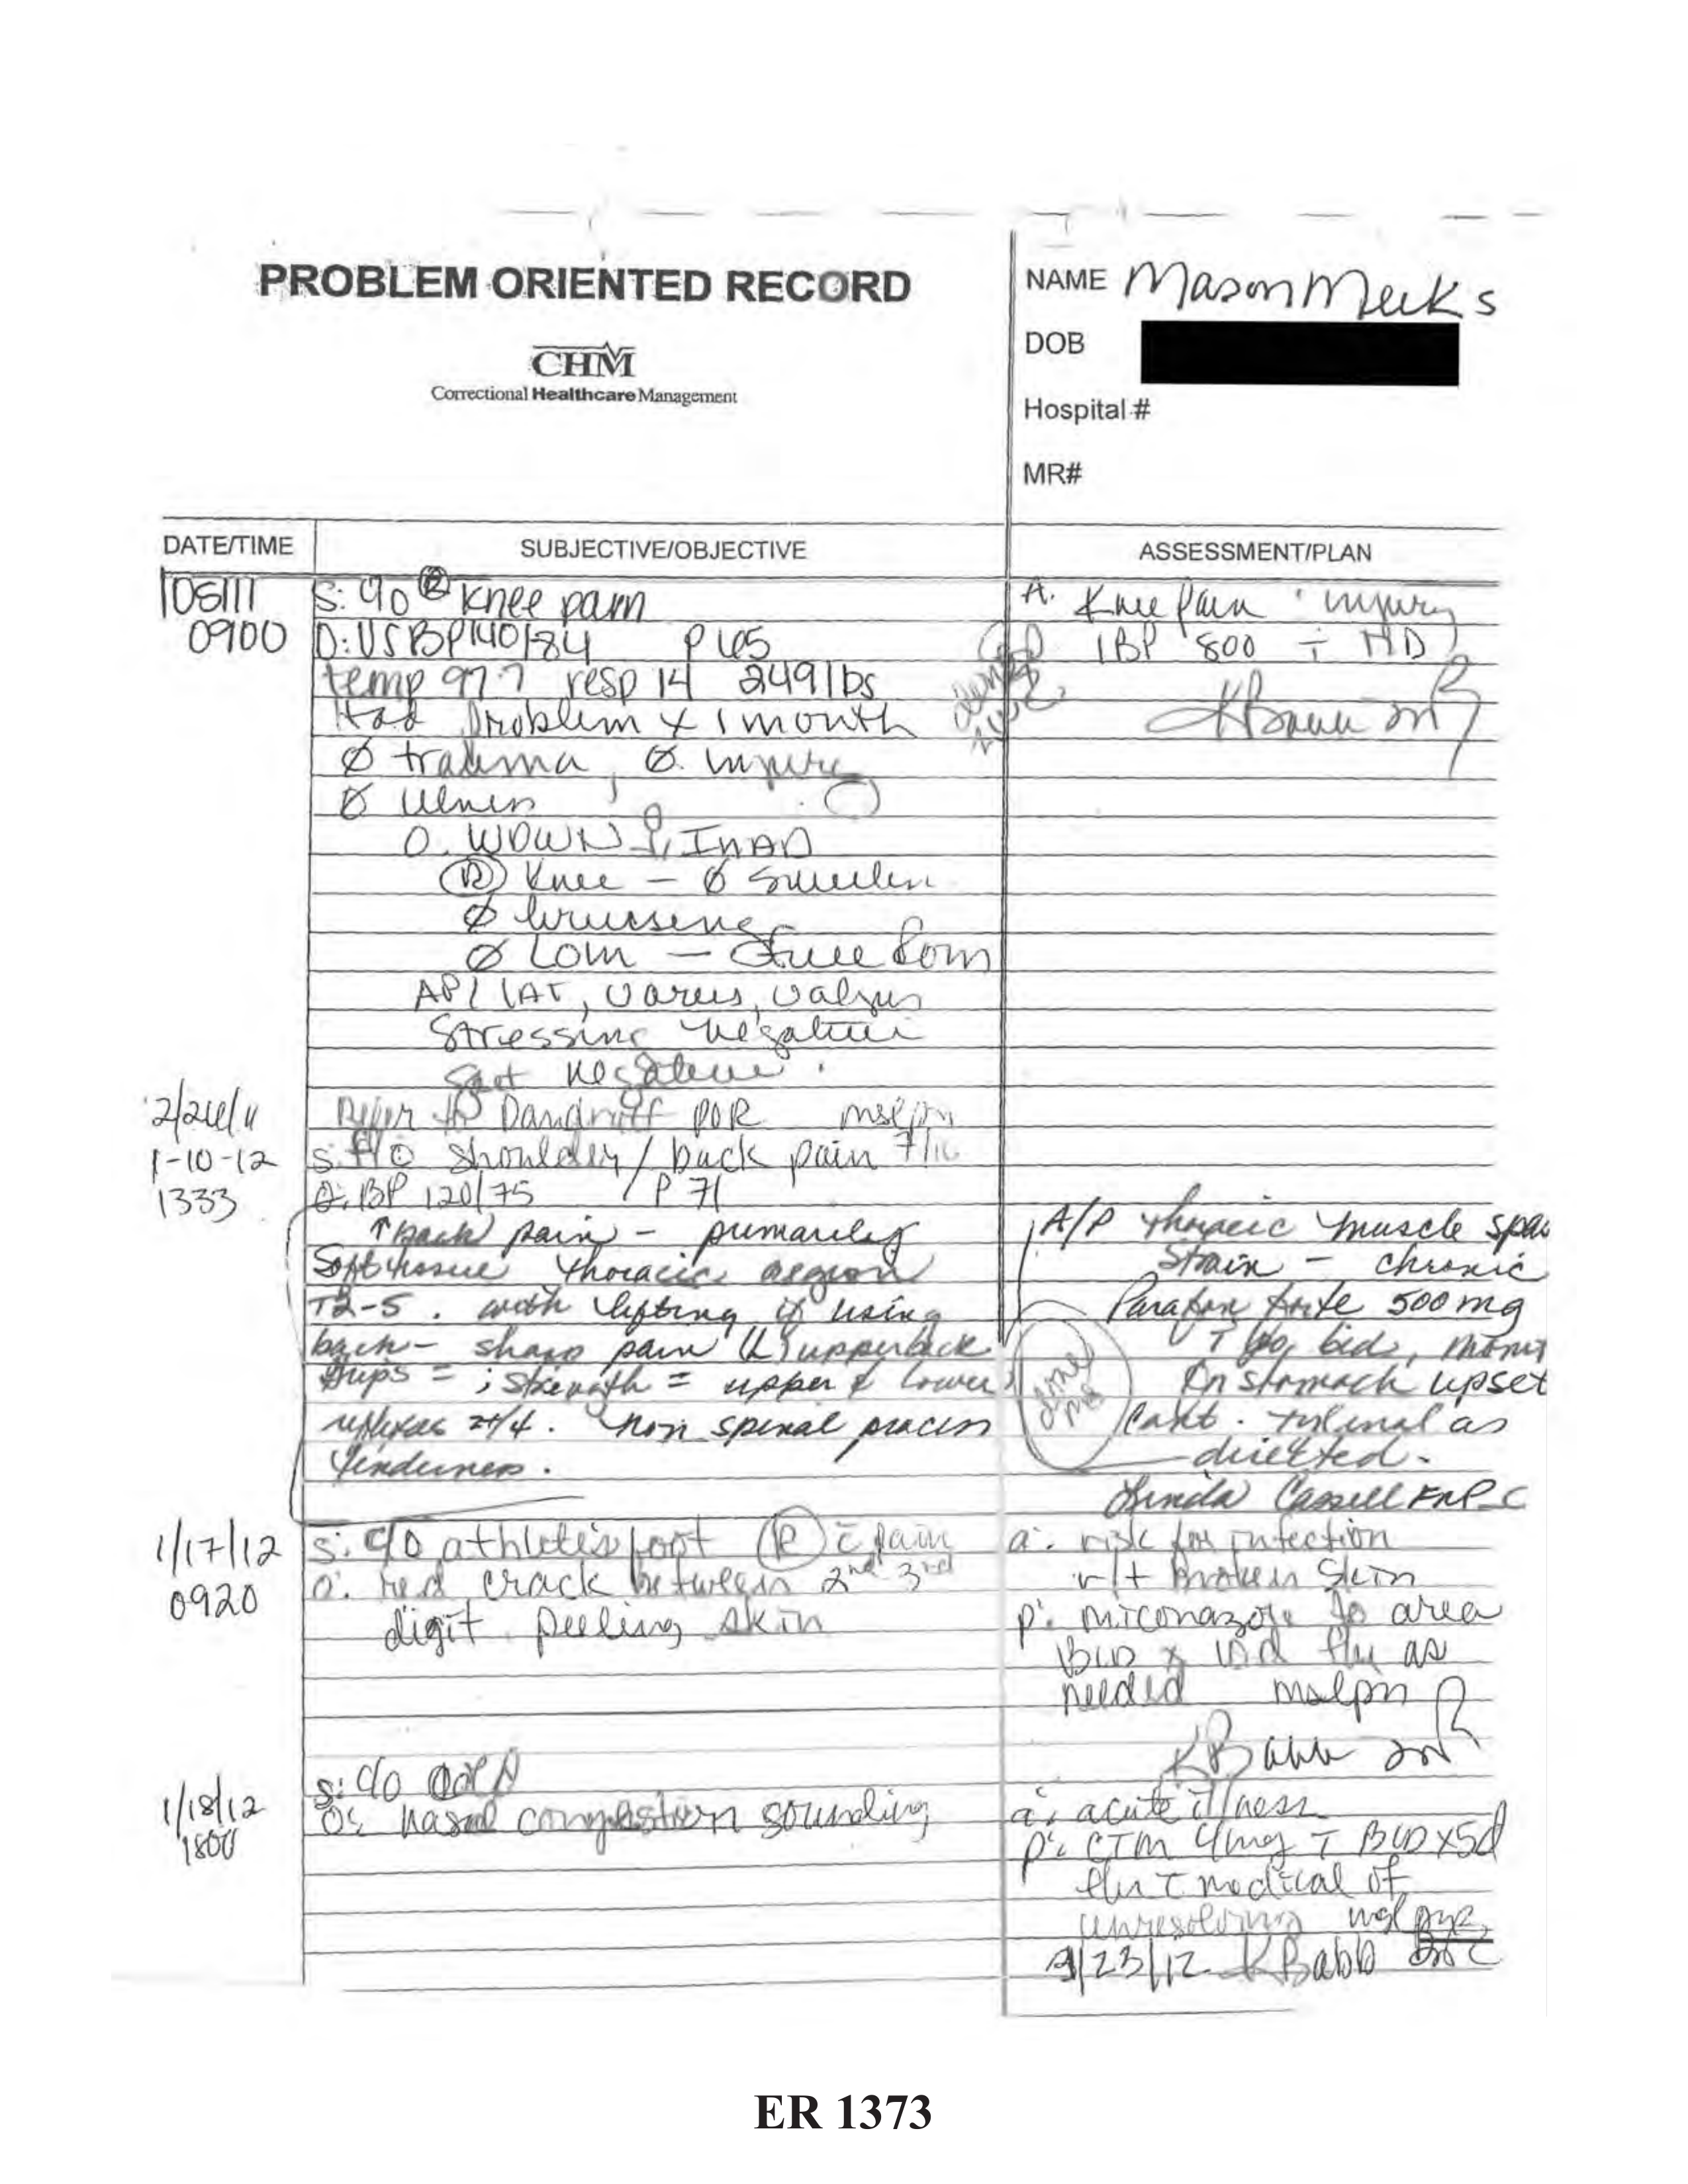 PROBLEM ORIENTED RECORD
CHM
Correctional Healthcare Management
NAME Mason Meeks
DOB
Hospital #
MR#
DATE/TIME
SUBJECTIVE/OBJECTIVE
ASSESSMENT/PLAN
0900
S: c/o Ⓡ knee pain
O: VS BP 140/84 P 65
temp 97.7 resp 14 249 lbs
Had problem x 1 month
Ø trauma, Ø injury
Ø illness
O. WDWN, INAD
Ⓡ Knee - Ø swollen
Ø bruising
Ø LOM - Full Rom
AP/LAT, varus, valgus
Stressing negative
negative
A. Knee Pain injury
IBP 800
Refer to Dandruff POR mslpn
1-10-12
1333
S: c/o shoulder/back pain 7/10
O: BP 120/75 P 71
↑ back pain - primarily
Soft tissue thoracic region
T2-5. with lifting if using
back - sharp pain (L) upper back
Grips = ; strength = upper & lower
reflexes 2+/4. Non spinal process
tenderness.
A/P thoracic muscle spa
strain - chronic
Parafon forte 500mg
T po bid,
on stomach upset
cont. tylenol as
directed.
Linda Cassell FNP-C
done
1/17/12
0920
S: c/o athlete's foot Ⓡ c̄ pain
o: red crack between 2nd 3rd
digit peeling skin
a: risk for infection
r/t broken skin
p: miconazole to area
BID x 10d f/u as
needed mslpn
K Babb
1/18/12
1800
S: c/o cold
O: nasal congestion sounding
a: acute illness
p: CTM 4mg T BID x5d
f/u c̄ medical if
unresolving
1/23/12 K Babb
ER 1373